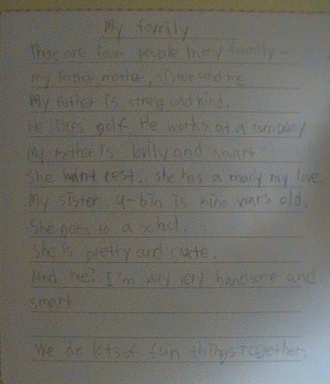 My family
There are four people in my family-
my father mother, sister and me.
My father is strong and kind.
He likes golf. He works at a company
My mother is lovily and smart
She want rest. She has a many my love.
My sister u-bin is nine years old.
She goes to a schul.
She is pretty and cute.
And me? I'm very very handsome and
smart
We do lots of fun things together.